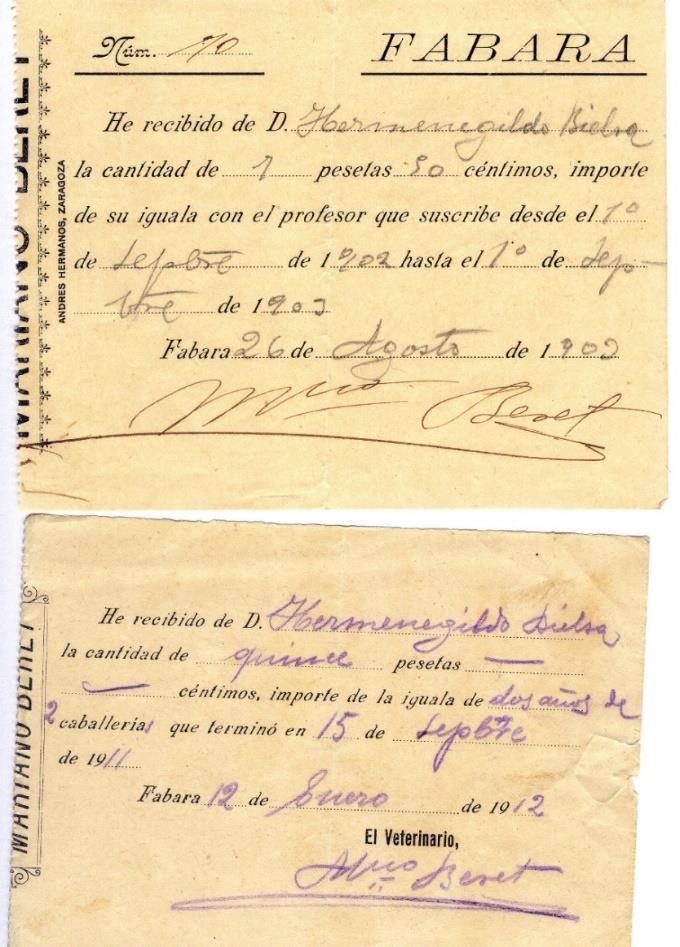 Núm. 70 FABARA
He recibido de D. Hermenegildo Bielsa
la cantidad de 7 pesetas 50 céntimos, importe
de su iguala con el profesor que suscribe desde el 1º
de Sepbre de 1902 hasta el 1º de Sep-
bre de 1903
Fabara 26 de Agosto de 1903
Mno Beret
MARIANO BERET
ANDRES HERMANOS, ZARAGOZA
He recibido de D. Hermenegildo Bielsa
la cantidad de quince pesetas —
— céntimos, importe de la iguala de dos años de
2 caballerías que terminó en 15 de Sepbre
de 1911
Fabara 12 de Enero de 1912
El Veterinario,
Mno Beret
MARIANO BERET